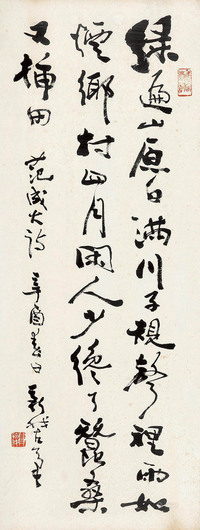 緑遍山原白滿川子規聲裡雨如
煙鄉村四月閑人少纔了蠶桑
又插田 范成大詩 辛酉春日 新我左筆